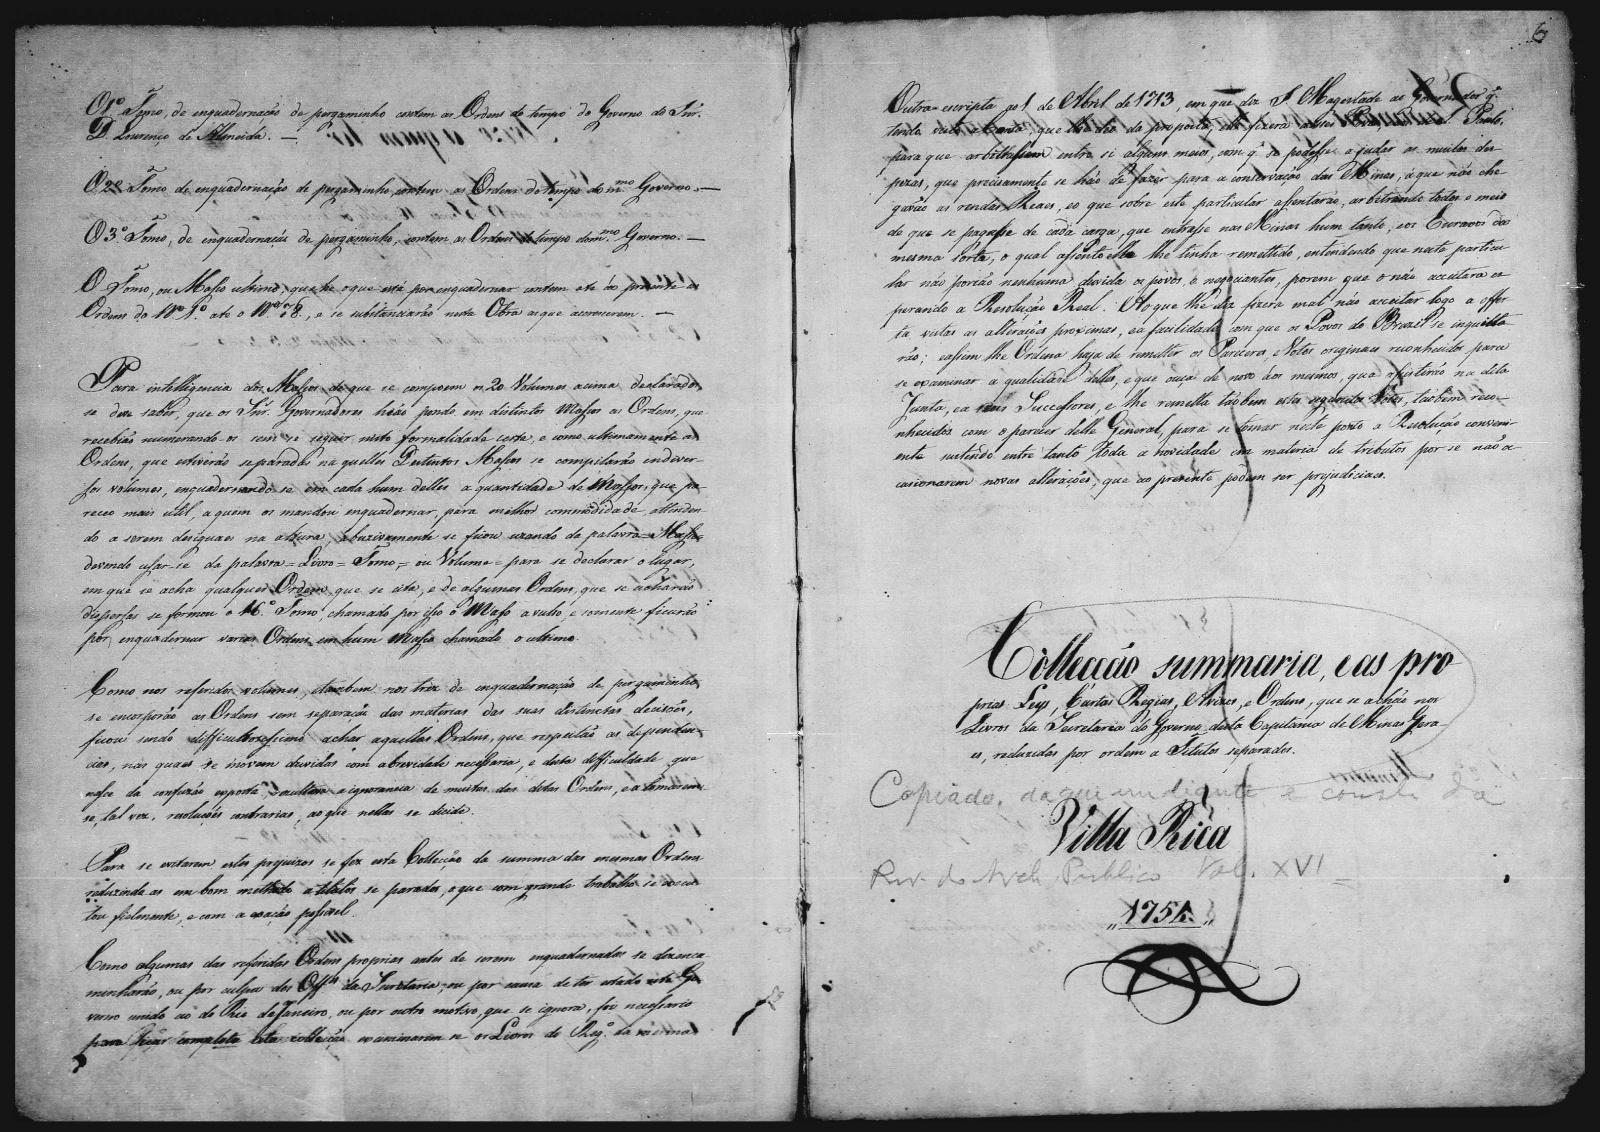 O 1º Tomo, de enquadernação de pergaminho contem as Ordens do tempo do Governo do Snr.
D. Lourenço de Almeida. —
O 2º Tomo de enquadernação de pergaminho, contem as Ordens do tempo do mmo Governo. —
O 3º Tomo, de enquadernação de pergaminho, contem as Ordens do tempo do mmo Governo. —
O Tomo, ou Masso ultimo, que he o que está por enquadernar contem até ao presente as
Ordens do Nº 1º até o Nº 78, e se substanciarão nesta Obra as que accrescerem. —
Para intelligencia dos Massos, de que se compoem os 20 Volumes acima declarados
se deve saber, que os Snr. Governadores hião pondo em distintos Massos as Ordens, que
recebião numerando-os sem se seguir nisto formalidade certa, e como ultimamente as
Ordens, que estiverão separadas naquelles Distintos Massos se compilarão em diver-
sos volumes, enquadernando-se em cada hum delles a quantidade de Massos, que pa-
receo mais util, a quem os mandou enquadernar, para melhor commodidade, attenden-
do a serem desiguaes na altura, abuzivamente se ficou uzando da palavra = Masso
devendo usar-se da palavra = Livro = Tomo = ou Volume = para se declarar o lugar,
em que se acha qualquer Ordem que se cita, e de algumas Ordens, que se acharão
dispersas se formou o 16.º Tomo, chamado por isso o Masso avulso, e somente ficarão
por enquadernar varias Ordens, em hum Masso chamado o ultimo.
Como nos referidos volumes, e tambem nos trez de enquadernação de pergaminho
se encorporão as Ordens sem separação das materias das suas distinctas decisões,
ficou sendo difficultosissimo achar aquellas Ordens, que respeitão as dependen-
cias, nas quaes se movem duvidas com a brevidade necessaria, e desta difficuldade que
nasce da confuzão exposta, rezultava a ignorancia de muitas das ditas Ordens, e a tomarem-
se, tal vez, resoluções contrarias, ao que nellas se decide.
Para se evitarem estes prejuizos se fez esta Collecção da summa das mesmas Ordens
reduzindo as em bom methodo a titulos separados, o que com grande trabalho se execu-
tou fielmente, e com a exação possivel.
Como algumas das referidas Ordens proprias antes de serem enquadernadas se desenca-
minharão, ou por culpa dos Offes. da Secretaria, ou por cauza de ter estado este Go-
verno unido ao do Rio de Janeiro, ou por outro motivo, que se ignora, foi necessario
para ficar completa esta collecção examinarem-se os Livros de Rego. da mesma
6
Outra escripta ao 1 de Abril de 1713, em que diz S. Magestade ao Governador q.
tendo visto a Carta, que lhe deo da proposta, que fizera
para que arbitrassem entre si alguns meios, com q. se podesse ajudar as muitas des-
pezas, que precisamente se hão de fazer para a conservação das Minas, a que não che-
gavão as rendas Reaes, e o que sobre este particular assentarão, arbitrando todos o meio
de que se pagasse de cada carga, que entrasse nas Minas hum tanto, e os Escravos da
mesma sorte, o qual assento elle lhe tinha remettido, entendendo que neste particu-
lar não porião nenhuma duvida os povos, e negociantes, porem que o não aceitara es-
perando a Resolução Real. Ao que lhe diz fizera mal não aceitar logo a offer-
ta vistas as alterações proximas, e a facilidade com que os Povos do Brazil se inquieta-
rão; e assim lhe Ordena haja de remetter os Pareceres, e Votos originaes reconhecidos para
se examinar a qualidade delles, e que ouça de novo aos mesmos, que assistirão na dita
Junta, e a seus Successores, e lhe remetta tãobem esta segunda Votos, tãobem reco-
nhecidos com o parecer delle General, para se tomar neste ponto a Resolução conveni-
ente sustendo entre tanto toda a novidade em materia de tributos por se não o-
casionarem novas alterações, que ao presente podem ser prejudiciaes.
Collecção summaria, e as pro
prias Leys, Cartas Regias, Avizos, e Ordens, que se achão nos
Livros da Secretaria do Governo desta Capitania de Minas Gera-
es, reduzidas por ordem a Titulos separados.
Copiado, daqui em diante, e consta da
Villa Rica
Rev. do Arch. Publico Vol. XVI
„1754„